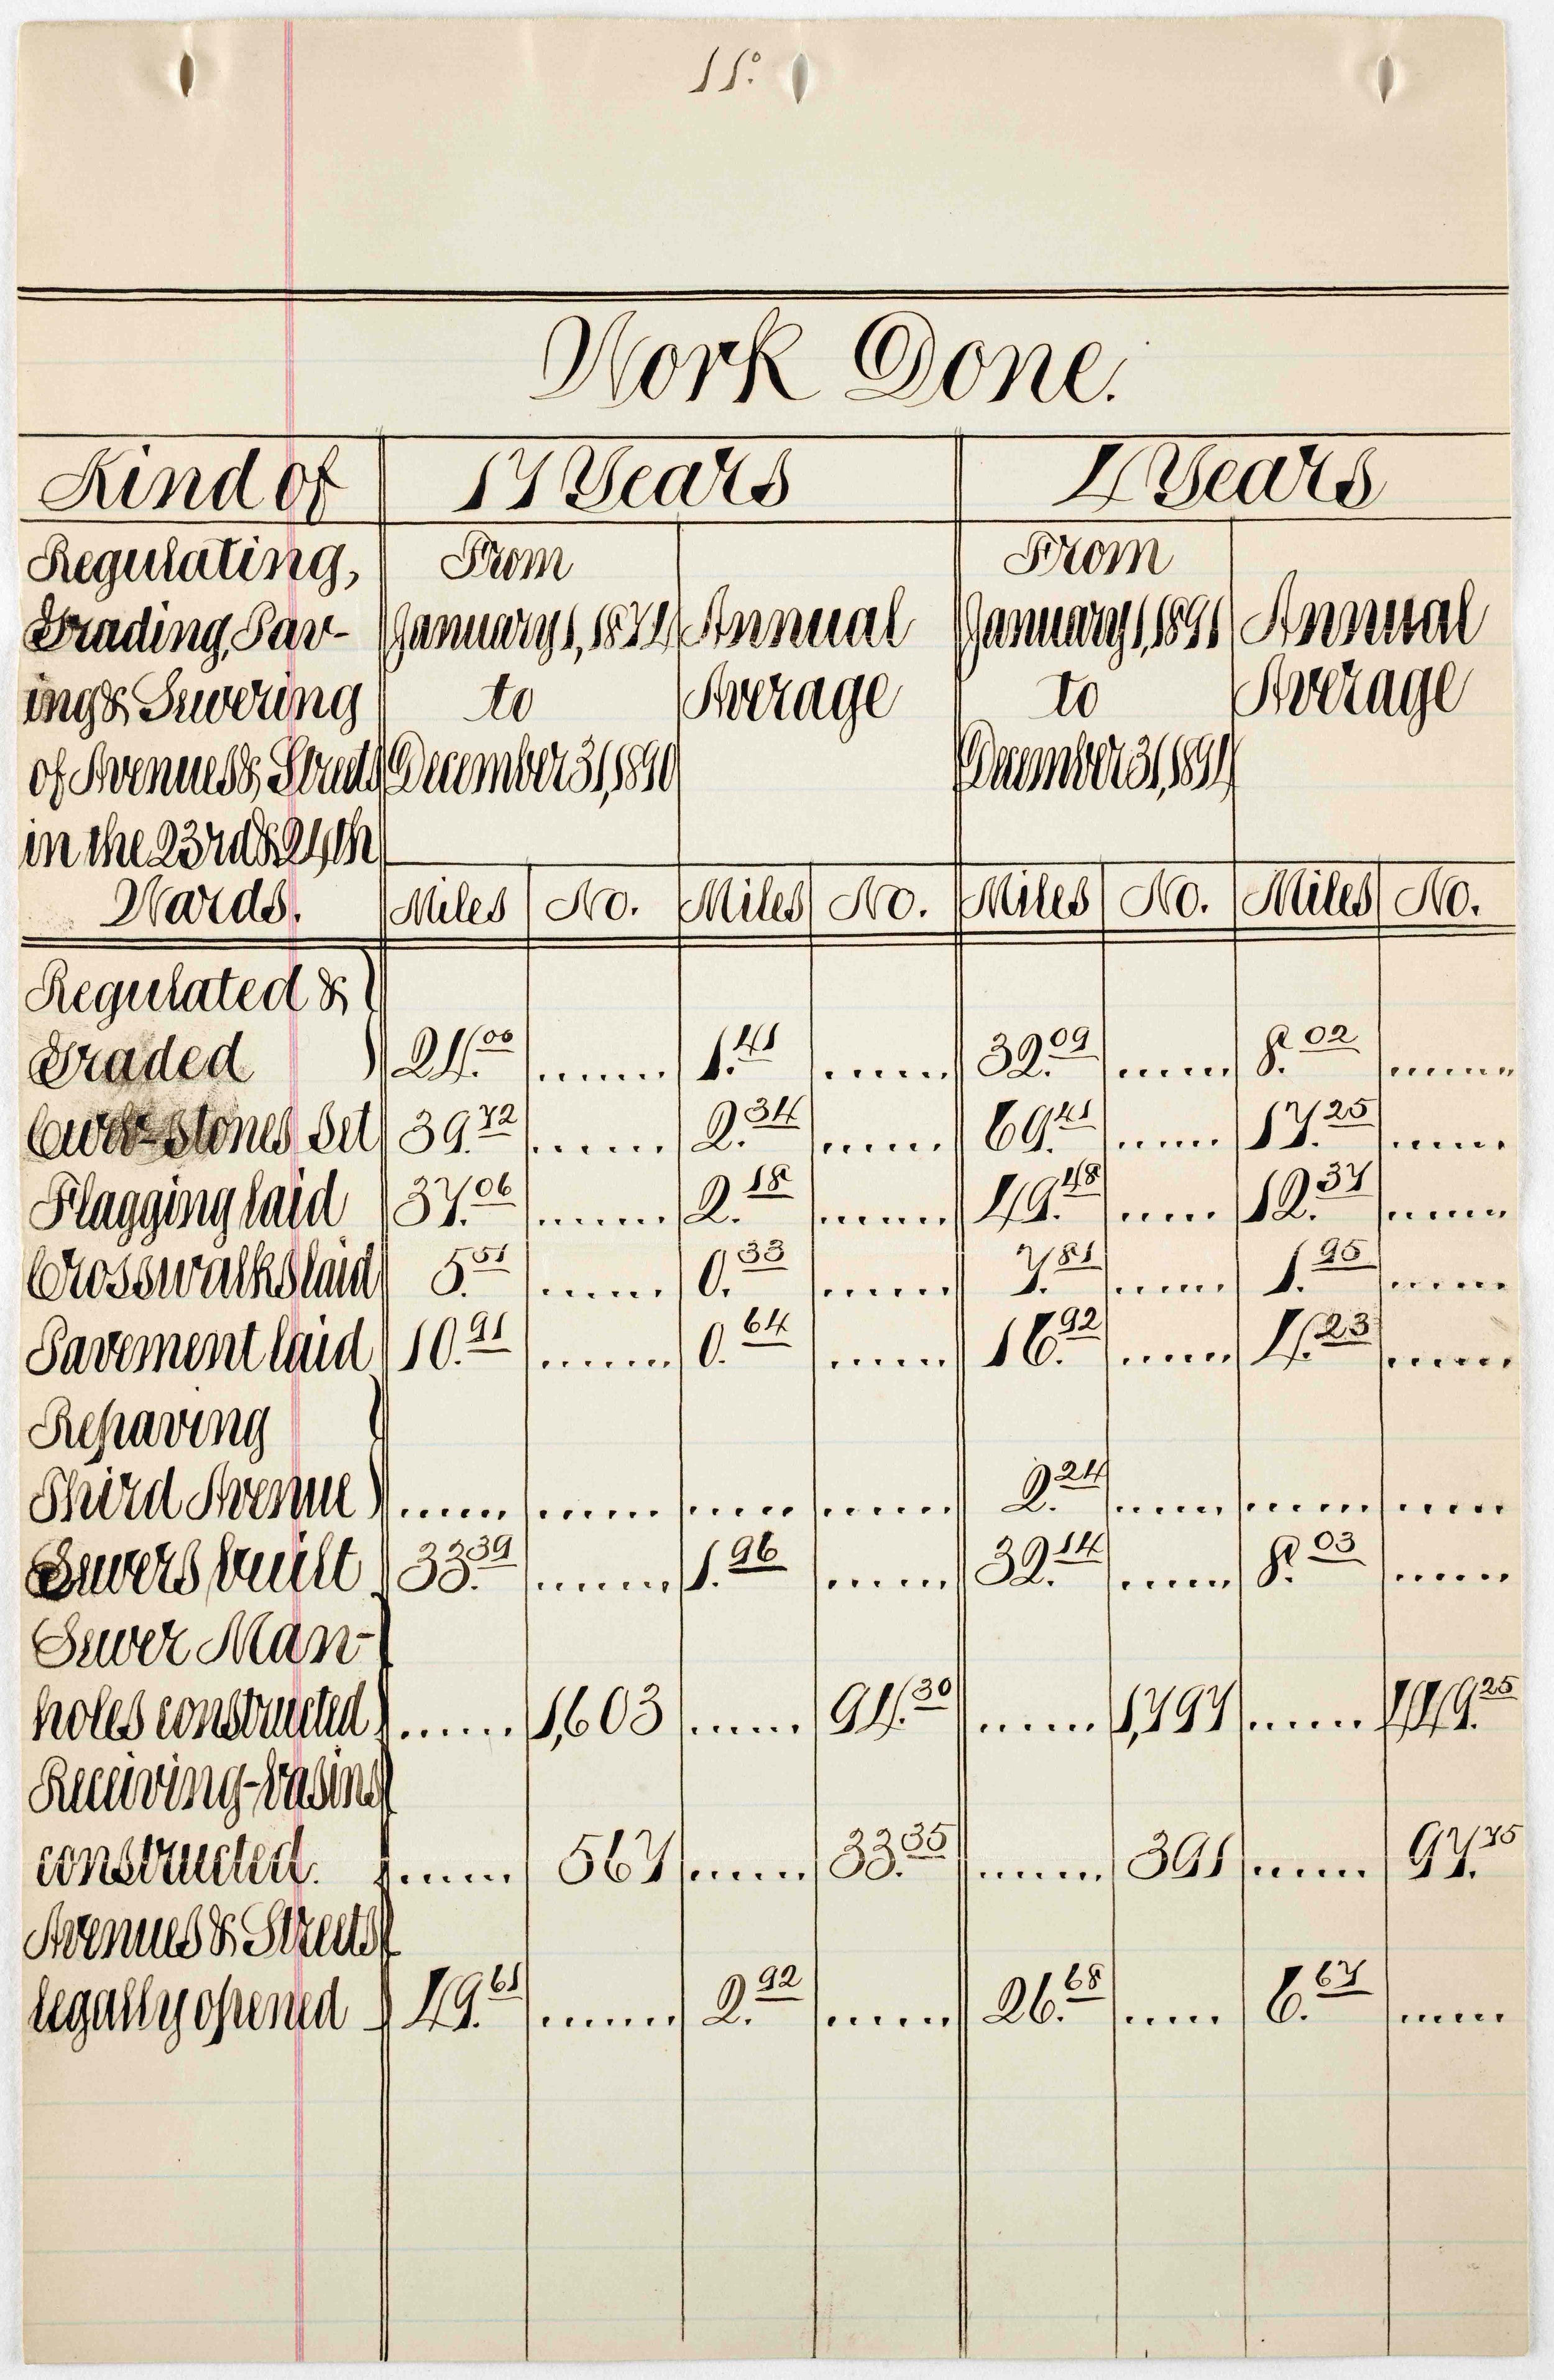 11.
Work Done.
Kind of 17 Years 4 Years
Regulating, From From
Grading, Pav- January 1, 1874 Annual January 1, 1891 Annual
ing & Sewering to Average to Average
of Avenues & Streets December 31, 1890 December 31, 1894
in the 23rd & 24th
Wards. Miles No. Miles No. Miles No. Miles No.
Regulated &
Graded 24.00 ...... 1.41 ..... 32.09 ..... 8.02 ......
Curb-stones Set 39.72 ...... 2.34 ..... 69.41 ..... 17.25 .....
Flagging laid 37.06 ...... 2.18 ...... 49.48 ..... 12.37 .....
Crosswalks laid 5.51 ...... 0.33 ...... 7.81 ..... 1.95 .....
Pavement laid 10.91 ...... 0.64 ..... 16.92 ..... 4.23 .....
Repaving
Third Avenue ...... ..... ..... ..... 2.24 ..... ..... .....
Sewers built 33.39 ...... 1.96 ..... 32.14 ..... 8.03 .....
Sewer Man-
holes constructed ...... 1,603 ..... 94.30 ..... 1,797 ..... 449.25
Receiving-basins
constructed. ..... 567 ..... 33.35 ..... 391 ..... 97.75
Avenues & Streets
legally opened 49.61 ...... 2.92 ...... 26.68 ..... 6.67 .....